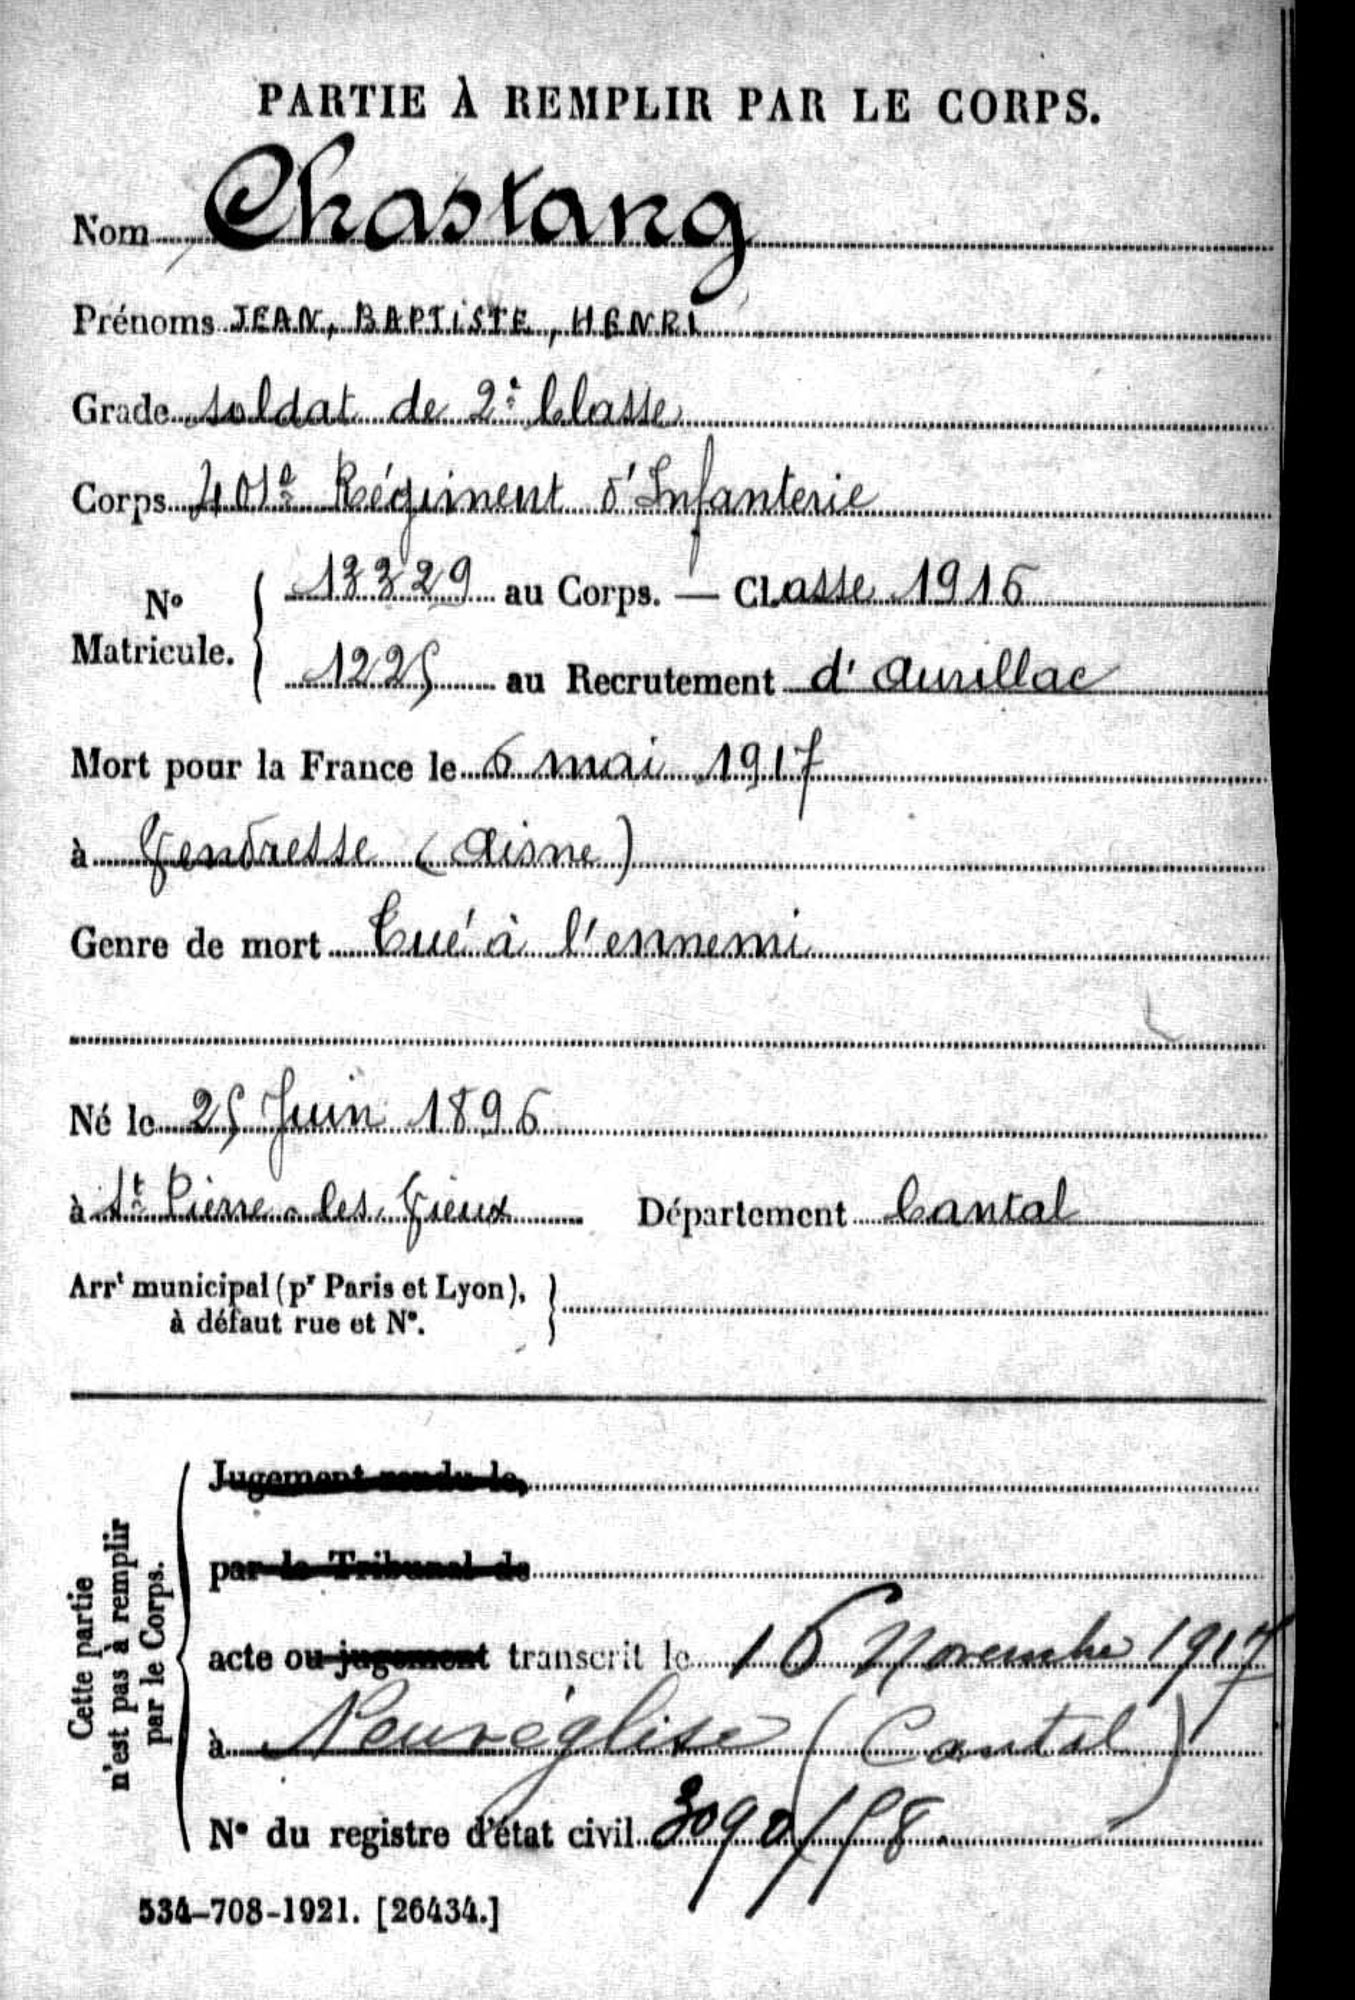 PARTIE À REMPLIR PAR LE CORPS.
Nom Chastang
Prénoms JEAN, BAPTISTE, HENRI
Grade soldat de 2e Classe
Corps 401e Régiment d'Infanterie
No Matricule. 13329 au Corps. — Classe 1916
1225 au Recrutement d'Aurillac
Mort pour la France le 6 mai 1917
à Vendresse (Aisne)
Genre de mort Tué à l'ennemi
Né le 25 Juin 1896
à St Pierre-les-Vieux Département Cantal
Arrt municipal (pr Paris et Lyon),
à défaut rue et No.
Cette partie
n'est pas à remplir
par le Corps.
Jugement rendu le,
par le Tribunal de
acte ou jugement transcrit le 16 Novembre 1917
à Neuvéglise (Cantal)
No du registre d'état civil
534-708-1921. [26434.]